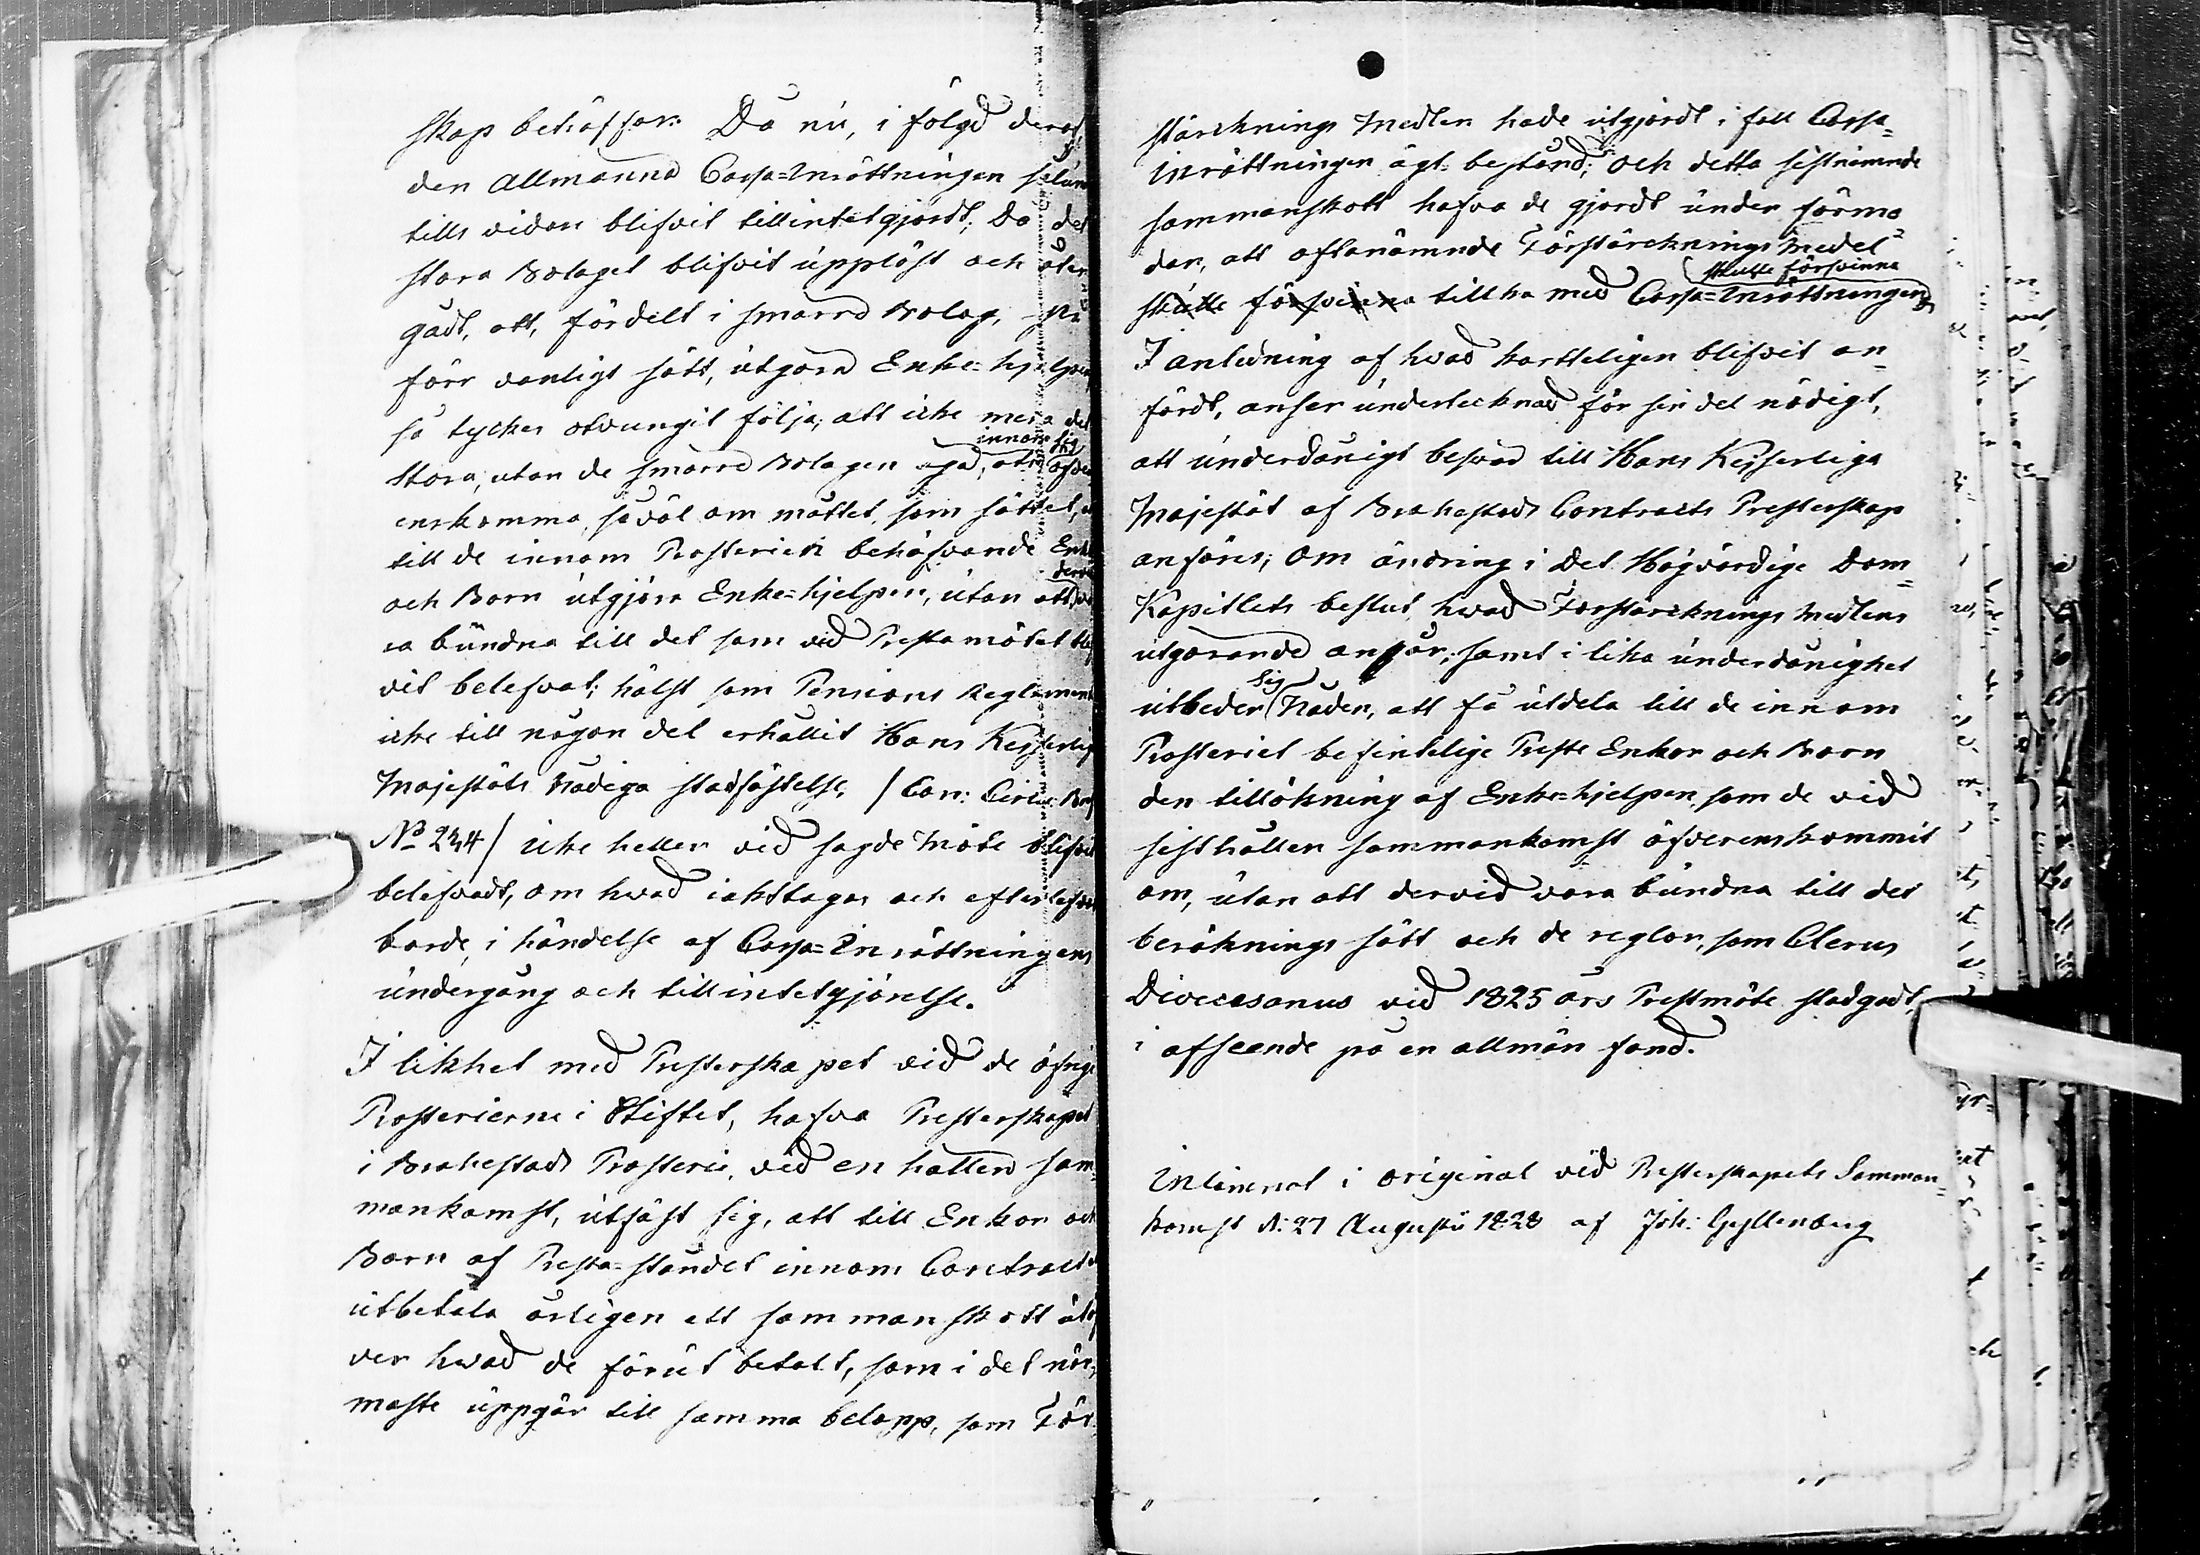 skap behöfser. Då nu, i följd deraf
den Allmänna Cassa=Inrättningen sålun
tills vidare blifvit tillintetgjordt; Då det
stora Bolaget blifvit upplöst och åter
gådt, att, fördelt i smärre Bolag, på
förr vanligt sätt, utgöra Enke=hjelpen
så tyckes otvungit följa, att icke mera det
stora, utan de smärre Bolagen äga, att innom sig öfver
enskomma, såväl om måttet, som sättet, at
till de innom Prosteriet behöfvande Enk
och Barn utgjöra Enke=hjelpen, utan att derv
ra bundna till det som vid Prestamötet blif
vit belefvat; hälst som Pensions Reglement
icke till någon del erhållit Hans Kejserlig
Majestäts Nådiga stadfästelse, / Con: Circ: Bref
No 234 / icke heller vid sagde Möte blifvit
belefvadt, om hvad iakttagas och efterlefvas
borde, i händelse af Cassa=Inrättningens
undergång och tillintetgjörelse.
I likhet med Presterskapet vid de öfrige
Prosterierne i Stiftet, hafva Presterskapet
i Brahestads Prosteri, vid en hållen sam=
mankomst, utfäst sig, att till Enkor och
Barn af Presta=ståndet innom Contractet
utbetala årligen ett sammanskott utöf
ver hvad de förut betalt, som i det när=
maste uppgår till samma belopp, som För=
stärcknings Medlen hade utgjordt i fall Cassa=
Inrättningen ägt bestånd; och detta sistnämnde
sammanskott hafva de gjordt under förmo
dan, att oftanämnde Förstärcknings Medel
skulle försvinna
skulle försvinna tillika med Cassa=Inrättningen
I anledning af hvad korteligen blifvit an=
fördt, anser undertecknad för sin del nödigt,
att underdånigt besvär till Hans Kejserliga
Majestät af Brahestads Contracts Presterskap
anföres; Om ändring i Det Högvördige Dom=
Kapitlets beslut hvad Förstärcknings Medlens
utgörande angår; samt i lika underdånighet
utbeder sig Nåden, att få utdela till de innom
Prosteriet befintelige Preste Enkor och Barn
den tillökning af Enke=hjelpen, som de vid
sisthållen sammankomst öfverenskommit
om, utan att dervid vara bundna till det
beräknings sätt och de reglor, som Clerus
Dioecesanus vid 1825 års Prestmöte stadgadt,
i afseende på en allmän fond.
Inlämnat i original vid Presterskapets Samman=
komst d: 27 Augusti 1828 af Joh: Gyllenberg